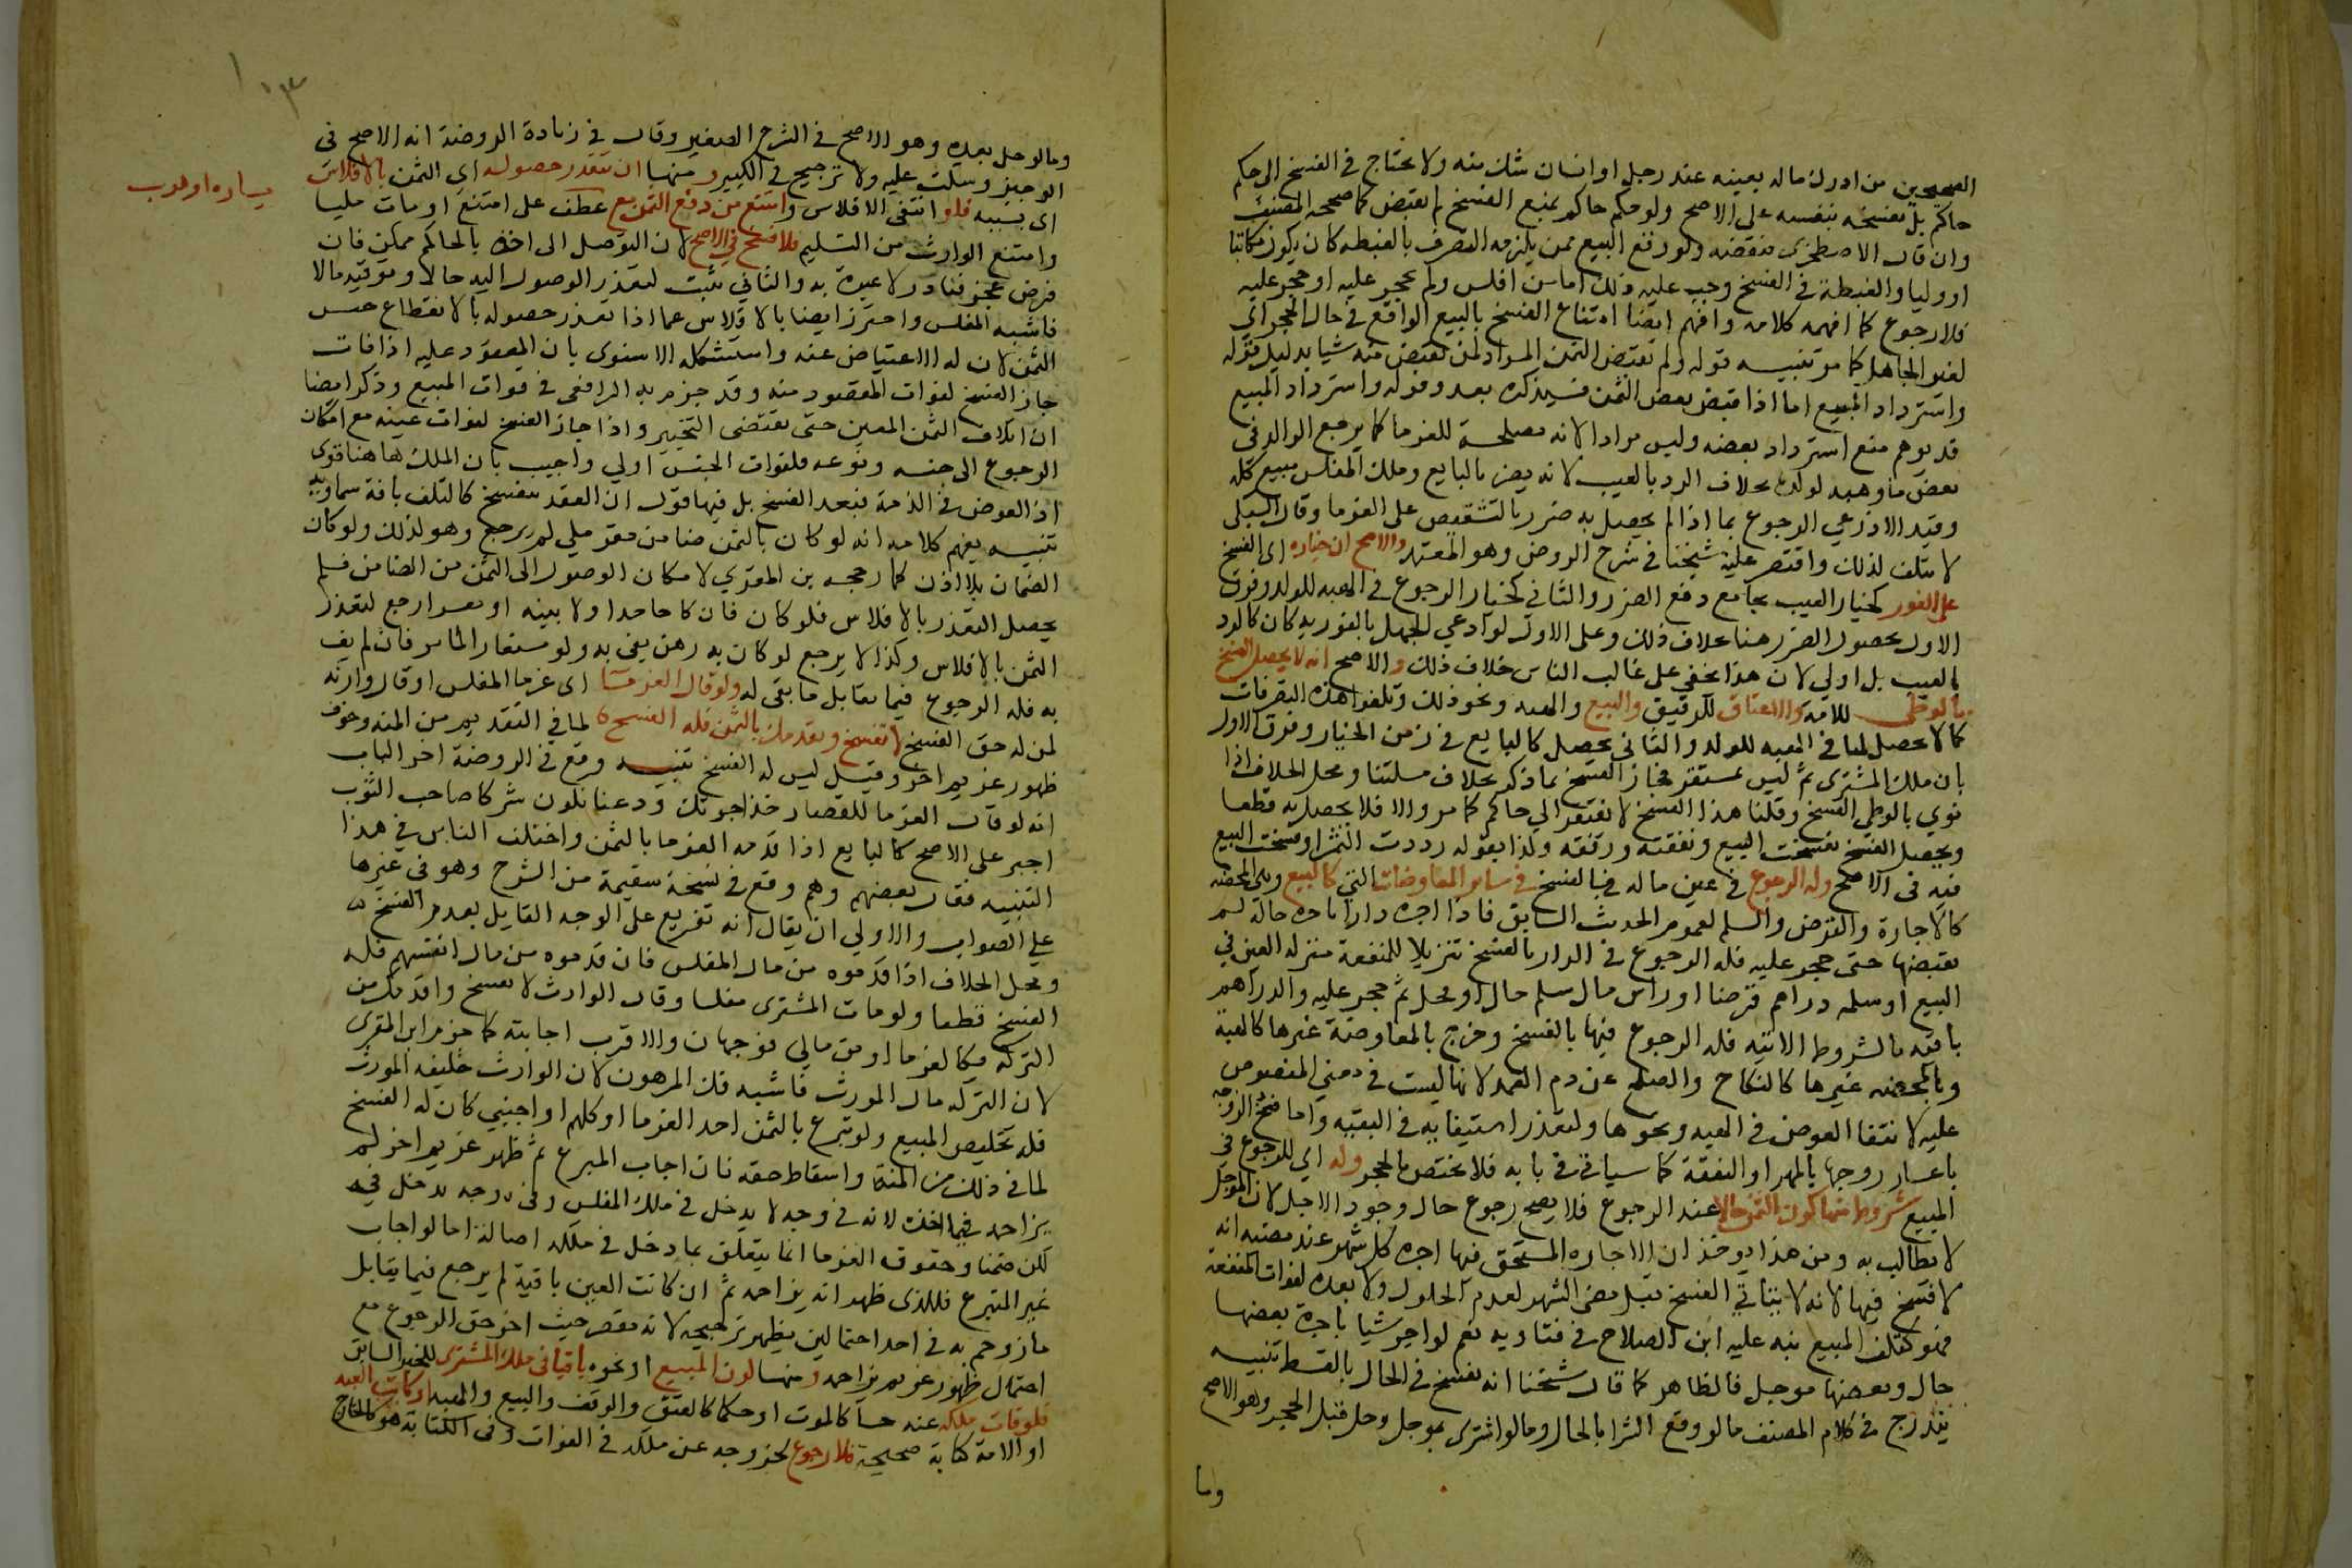 الصحيحين من ادرك ماله بعينه عند رجل او انسان شك منه ولا يحتاج في الفسخ الى حكم
حاكم بل يفسخه بنفسه على الاصح ولو حكم حاكم بمنع الفسخ لم ينقض كما صححه المصنف
وان قال الاصطخرى ينقضه ولو وقع البيع ممن يلزمه التصرف بالغبطه كان يكون مكاتبا
او وليا والغبطة في الفسخ وجب عليه ذلك اما من افلس ولم يحجر عليه او حجر عليه
فلا رجوع كما افهمه كلامه وافهم ايضا امتناع الفسخ بالبيع الواقع في حال الحجر اي
لغير الجاهل كما مر تنبيــه قوله ولم يقبض الثمن المراد لمن يقبض منه شيا بدليل قوله
واسترداد المبيع اما اذا قبض بعض الثمن فسيذكره بعد وقوله واسترداد المبيع
قد يوهم منع استرداد بعضه وليس مرادا لانه مصلحة للغرما كما يرجع الوالد في
بعض ما وهبه لولده بخلاف الرد بالعيب لانه يضر بالبايع وملك المفلس مبيع كله
وقيد الاذرعي الرجوع بما اذا لم يحصل به ضرر بالتشقيص على الغرما وقال السبكى
لا يتلف لذلك واقتصر عليه شيخنا في شرح الروض وهو المعتمد والاصح ان خياره اى الفسخ
على الفور كخيار العيب بجامع دفع الضرر والثاني كخيار الرجوع في الهبه للولد وفرق
الاول بحصول الضرر هنا بخلاف ذلك وعلى الاول لو ادعي الجهل بالفوريه كان كالرد
بالعيب بل اولي لان هذا يخفي على غالب الناس بخلاف ذلك والاصح انه لا يحصل الفسخ
بالوطى للامة والاعتاق للرقيق والبيع والهبه ونحو ذلك وتلغوا هذه التصرفات
كما لا يحصل لها في الهبه للولد والثانى يحصل كالبايع في زمن الخيار وفرق الاول
بان ملك المشترى ثم ليس بمستقر فجاز الفسخ بما ذكر بخلاف مسلتنا ومحل الخلاف اذا
نوي بالوطى الفسخ وقلنا هذا الفسخ لا يفتقر الي حاكم كما مر والا فلا يحصل به قطعا
ويحصل الفسخ بفسخت البيع ونقضته ورفعته ولذا بقوله رددت الثمن او فسخت البيع
فيه فى الاصح وله الرجوع في عين ماله في بالفسخ في ساير المعاوضات التي كالبيع وهى المحضه
كالاجارة والقرض والسلم لعموم الحديث السابق فاذا اجره دارا باجره حالة لم
يقبضها حتى حجر عليه فله الرجوع في الدار بالفسخ تنزيلا للمنفعة منزله العين في
البيع او سلمه دراهم قرضا او راس مال سلم حال او محل ثم حجر عليه والدراهم
باقيه بالشروط الاتيه فله الرجوع فيها بالفسخ وخرج بالمعاوضة غيرها كالهبة
وبالمحضه غيرها كالنكاح والصلح عن دم العمد لانها ليست في معني المنصوص
عليه لانتفا العوض في الهبه ونحوها ولتعذر استيفايه في البقيه واما فسخ الزوجه
باعسار زوجها بالمهر او النفقة كما سياتي في بابه فلا يختص بالحجر وله اي للرجوع في
المبيع شروط منها كون الثمن حالا عند الرجوع فلا يصح رجوع حال وجود الاجل لان المؤجل
لا يطالب به ومن هذا يوخذ ان الاجاره المستحق فيها اجره كل شهر عند مضيه انه
لا فسخ فيها لانه لا يتاتي الفسخ قبل مضى الشهر لعدم الحلول ولا بعده لفوات المنفعة
فهو كتلف المبيع نبه عليه ابن الصلاح في فتاويه نعم لو اجر شيا باجرة بعضها
حال وبعضها موجل فالظاهر كما قال شيخنا انه يفسخ في الحال بالقسط تنبيــه
يندرج في كلام المصنف ما لو وقع الشرا بالحال وما لو اشترى بموجل وحل قبل الحجر وهو الاصح
وما
وما لو حل بعده وهو الاصح في الشرح الصغير وقال في زيادة الروضة انه الاصح فى
الوجيز وسكت عليه ولا ترجيح في الكبير ومنها ان يتعذر حصوله اي الثمن بالافلاس
اى بسببه فلو انتفى الافلاس وامتنع من دفع الثمن مع عطف على امتنع او مات مليا
وامتنع الوارث من التسليم فلا فسخ في الاصح لان التوصل الى اخذه بالحاكم ممكن فان
فرض عجز فنادر لا عبرة به والثاني يثبت لتعذر الوصول اليه حالا وتوقيه مالا
فاشبه المفلس واحترز ايضا بالافلاس عما اذا تعذر حصوله بالانقطاع جنس
الثمن لان له الاعتياض عنه واستشكله الاسنوى بان المعقود عليه اذا فات
جاز الفسخ لفوات المقصود منه وقد جزم به الرافعى في فوات المبيع وذكر ايضا
ان اتلاف الثمن المعين حتى يقتضى التخيير واذا جاز الفسخ لفوات عينه مع امكان
الرجوع الى جنسه ونوعه فلفوات الجنس اولي واجيب بان الملك هاهنا قوى
اذ العوض في الذمة فبعد الفسخ بل فيها قول ان العقد ينفسخ كالتلف بافة سماويه
تنبيــه يفهم كلامه انه لو كان بالثمن ضامن مقر ملي لم يرجع وهو لذلك ولو كان
الضمان بلا اذن كما رجحه بن المقري لامكان الوصول الى الثمن من الضامن فلم
يحصل التعذر بالافلاس فلو كان فان كان جاحدا ولا بينه او معسرا رجع لتعذر
الثمن بالافلاس وكذا لا يرجع لو كان به رهن يفى به ولو مستعارا لما مر فان لم يف
به فله الرجوع فيما يقابل ما بقى له ولو قال الغرما اى غرما المفلس او قال وارثه
لمن له حق الفسخ لا تفسخ ونقدمك بالثمن فله الفسخ لما في التقديم من المنه وخوف
ظهور غريم اخر وقيل ليس له الفسخ تنبيــه وقع في الروضة اخر الباب
انه لو قال الغرما للقصار خذ اجرتك ودعنا نكون شركا صاحب الثوب
اجبر على الاصح كالبايع اذا قدمه الغرما بالثمن واختلف الناس في هذا
التنبيه فقال بعضهم وهم وقع في نسخة سقيمة من الشرح وهو فى غيرها
على الصواب والاولي ان يقال انه تفريع على الوجه القايل بعدم الفسخ
ومحل الخلاف اذا قدموه من مال المفلس فان قدموه من مال انفسهم فله
الفسخ قطعا ولو مات المشترى مفلسا وقال الوارث لا تفسخ واقدمك من
التركه فكالغرما او من مالي فوجهان والاقرب اجابته كما جزم ابن المقرى
لان التركه مال المورث فاشبه فك المرهون لان الوارث خليفه المورث
فله تخليص المبيع ولو تبرع بالثمن احد الغرما او كلهم او اجنبي كان له الفسخ
لما في ذلك من المنة واسقاط حقه فان اجاب المتبرع ثم ظهر غريم اخر لم
يزاحمه فيما اخذه لانه في وجه لا يدخل في ملك المفلس وفى وجه يدخل فيه
لكن ضمنا وحقوق الغرما انما يتعلق بما دخل في ملكه اصالة اما لو اجاب
غير المتبرع فللذى ظهر انه يزاحمه ثم ان كانت العين باقية لم يرجع فيما يقابل
ما زوحم به في احد احتمالين يظهر ترجيحه لانه مقصر حيث اخر حق الرجوع مع
احتمال ظهور غريم يزاحمه ومنها كون المبيع او نحوه باقيا فى ملك المشترى للخبر السابق
فلو فات ملكه عنه حسا كالموت او حكما كالعتق والوقف والبيع والهبه او كاتب العبد
او الامة كتابة صحيحة فلا رجوع لخروجه عن ملكه في الفوات وفى الكتابة هو كالخارج